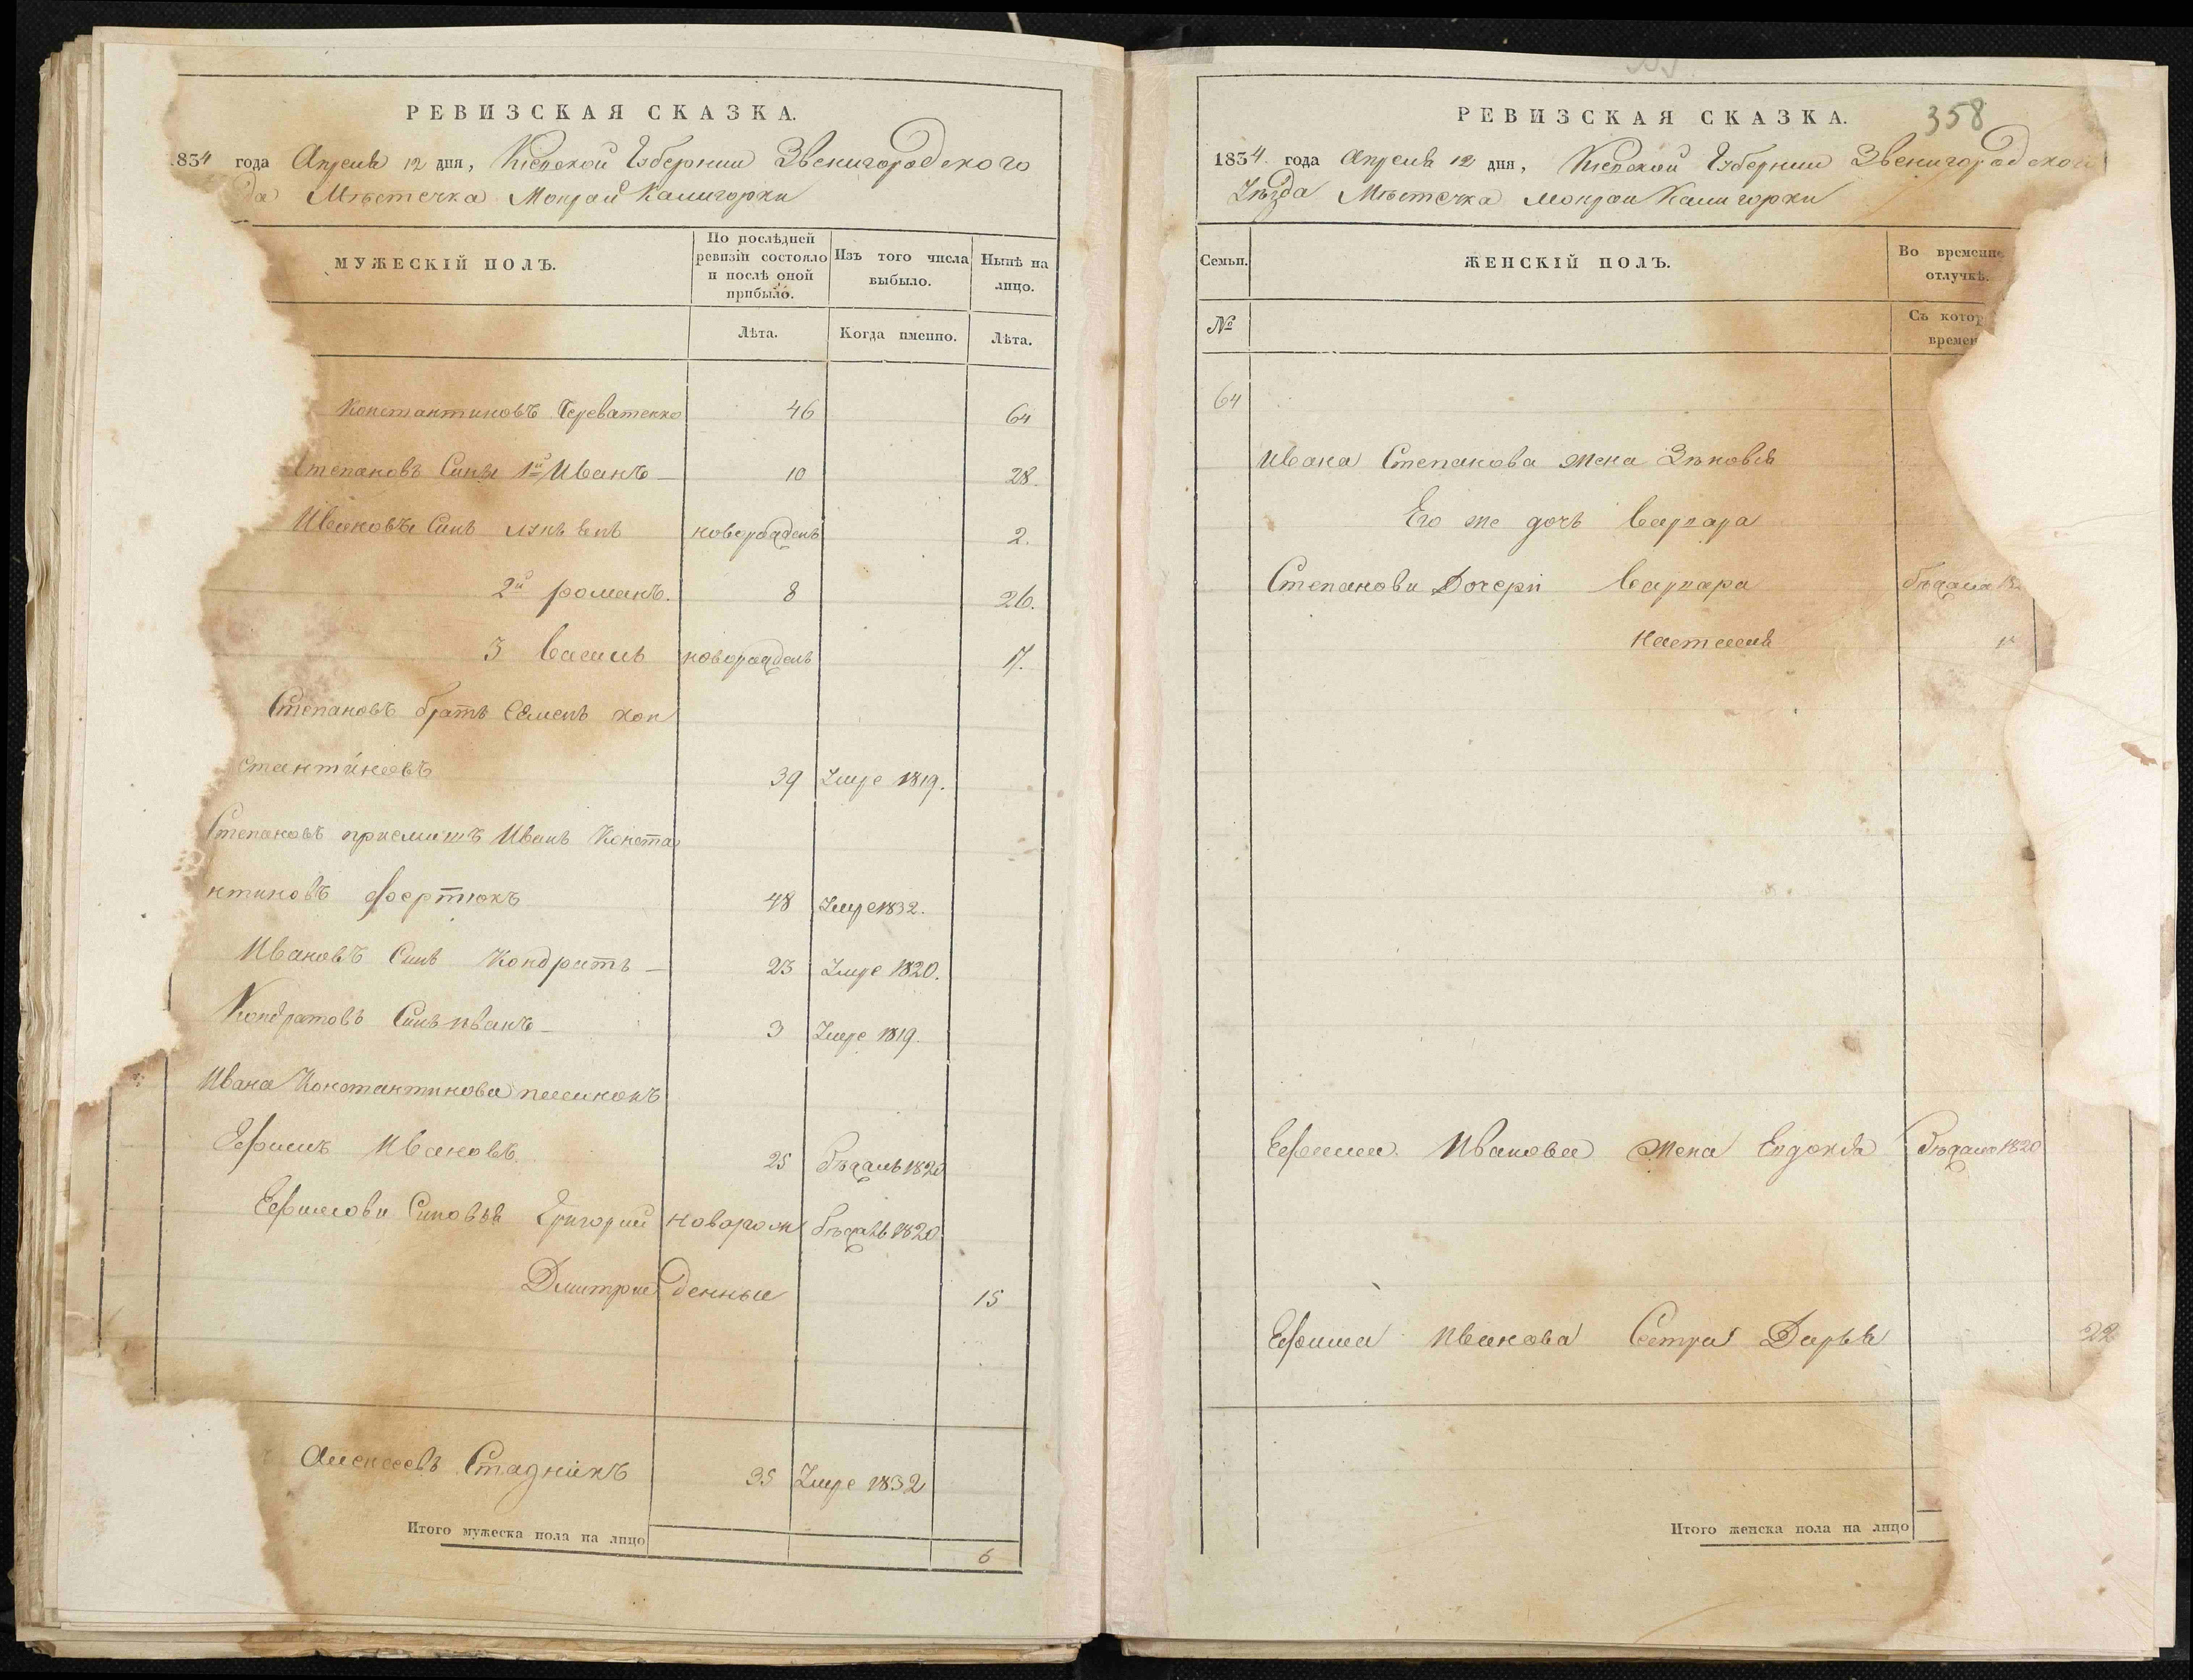 РЕВИЗСКАЯ СКАЗКА.
834 года Апреля 12 дня, Киевской Губернии Звенигородского
да Мѣстечка Мокрой Калигорки
МУЖЕСКІЙ ПОЛЪ.
По послѣдней ревизіи состояло и послѣ оной прибыло.
Изъ того числа выбыло.
Нынѣ на лицо.
Лѣта.
Когда именно.
Лѣта.
Константиновъ Череватенко 46 64
Степановъ Сины 1й Иванъ 10 28.
Ивановъ Синъ новорожденъ 2.
2й романъ. 8 26.
3 Василь новорожденъ 17.
Степановъ братъ Семенъ кон
стантиновъ 39 Умре 1819.
Степановъ приемишъ Иванъ Конста
нтиновъ Фертюкъ 48 Умре 1832.
Ивановъ Синъ Кондратъ 23 Умре 1820.
Кондратовъ Синъ иванъ 3 Умре 1819.
Ивана Константинова пасинокъ
Ефимъ Ивановъ. 25 бѣжалъ 1820
Ефимови Синовья Григорий новорож бѣжалъ 1820
Дмитрий денные 15
Алексеевъ Стадникъ 35 Умре 1832
Итого мужеска пола на лицо 6
358
РЕВИЗСКАЯ СКАЗКА.
1834. года Апреля 12 дня, Киевской Губернии Звенигородского
Уѣзда Мѣстечка Мокрой Калигорки
Семьи.
ЖЕНСКІЙ ПОЛЪ.
Во временно отлучкѣ.
№
Съ котор
времен
64
Ивана Степанова жена Зѣновія
Его же дочь Варвара
Степанови Дочери Варвара бѣжала
Настасія
Ефима Иванова жена Евдокія бѣжала 1820
Ефима Иванова Сестра Дарья 22
Итого женска пола на лицо